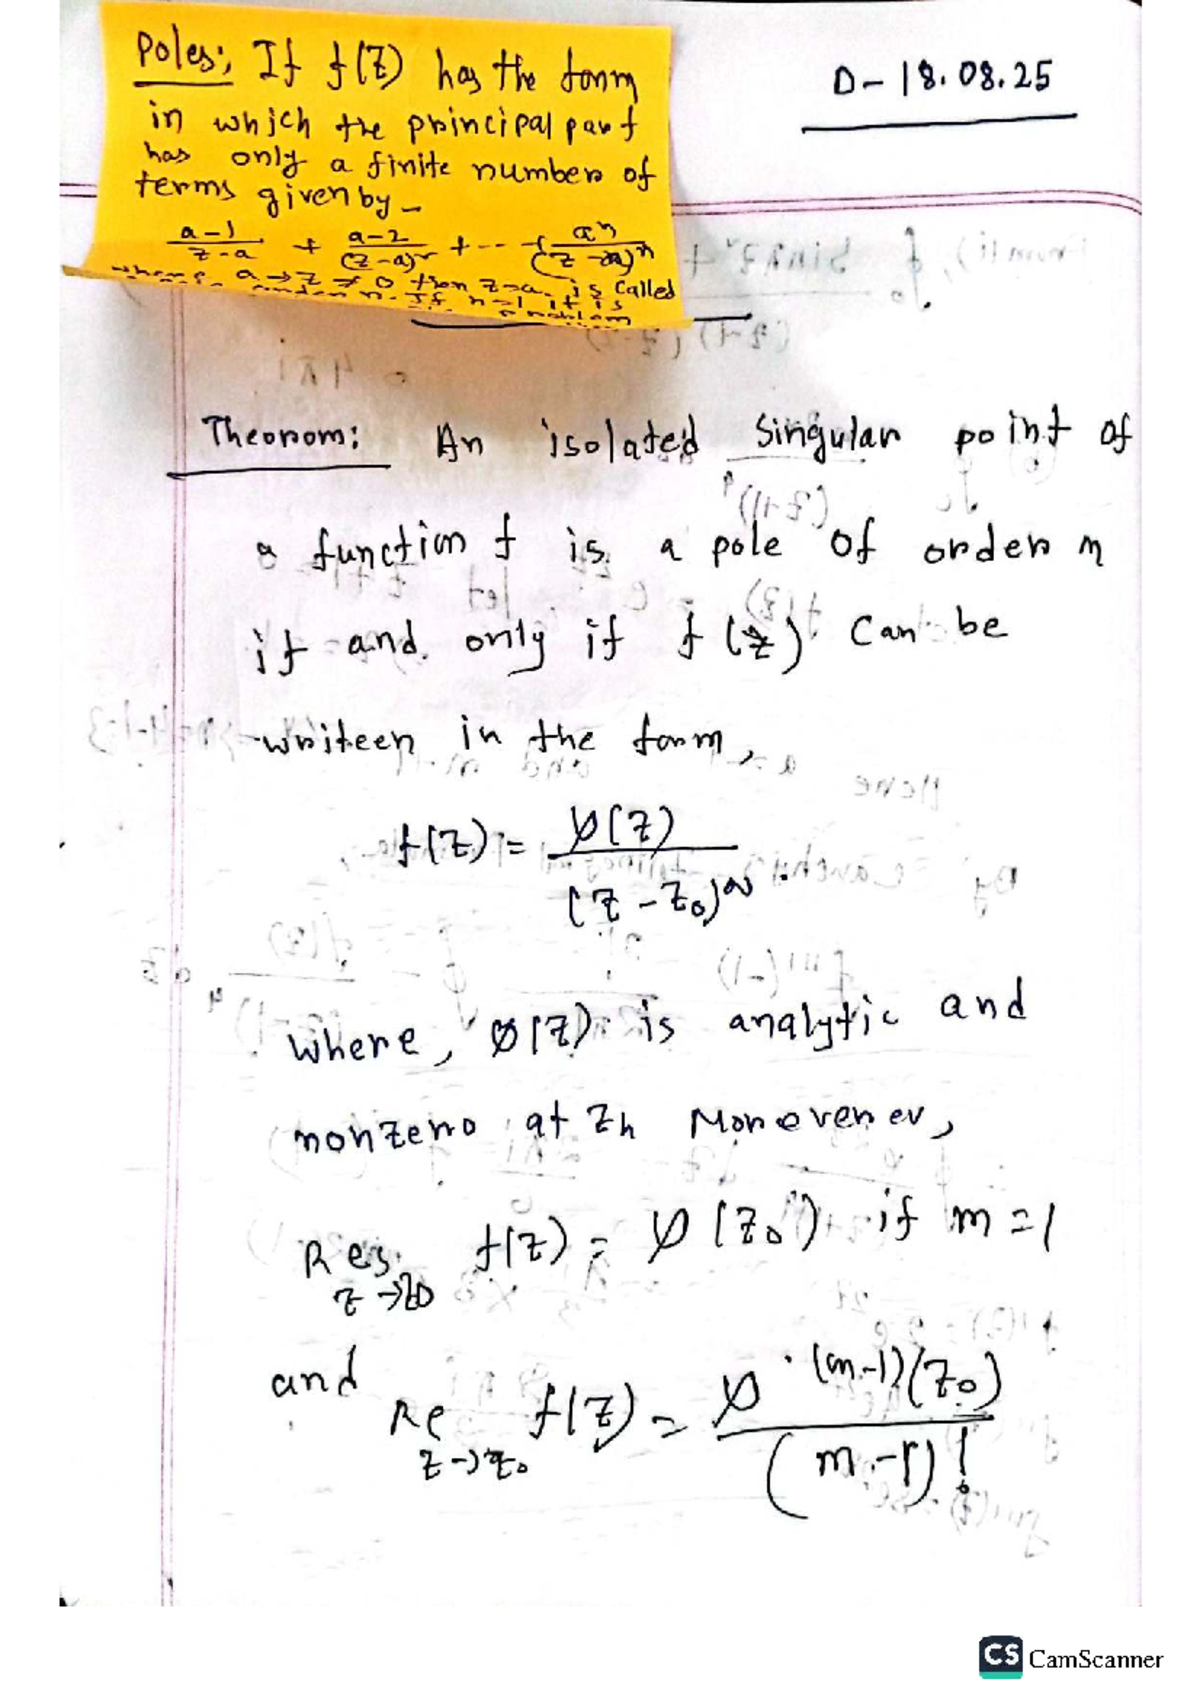 Poles; If f(z) has the form
in which the principal part
has only a finite number of
terms given by -
a-1/z-a + a-2/(z-a)² + -- + an/(z-a)^n
where, a→z ≠ 0 then z=a. is called
n. If n=1 it is
problem
D- 18.08.25
Theorom: An isolated singular point of
a function f is a pole of order m
if and only if f(z) can be
writeen in the form,
f(z) = φ(z)/(z-z₀)^m
where, φ(z) is analytic and
nonzero at zh Morevenev,
Res f(z) = φ(z₀) if m=1
z→z0
and Re f(z) = φ^(m-1)(z₀)/(m-1)!
z→z₀
CS CamScanner